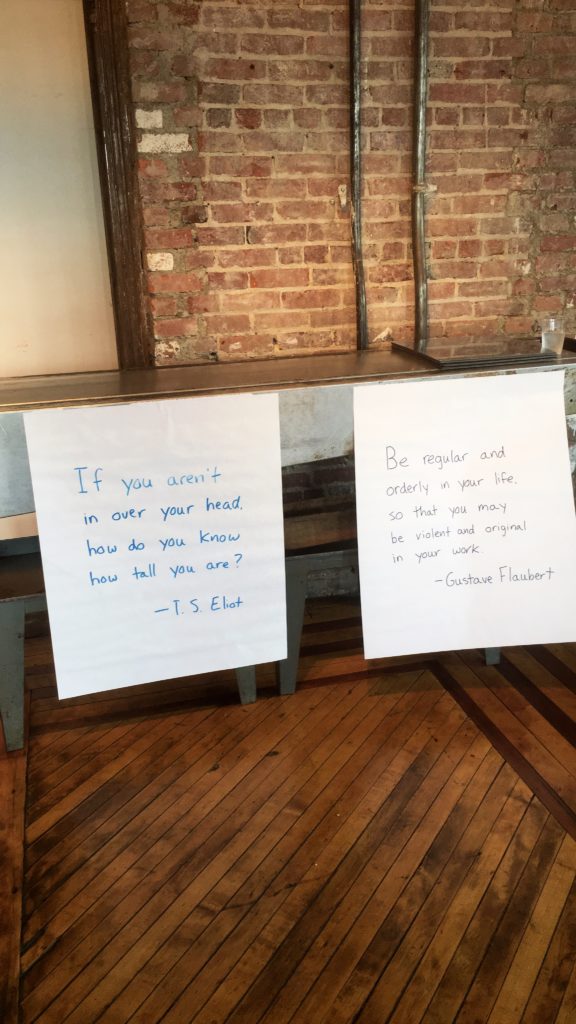 If you aren't
in over your head,
how do you know
how tall you are?
—T. S. Eliot
Be regular and
orderly in your life,
so that you may
be violent and original
in your work.
—Gustave Flaubert